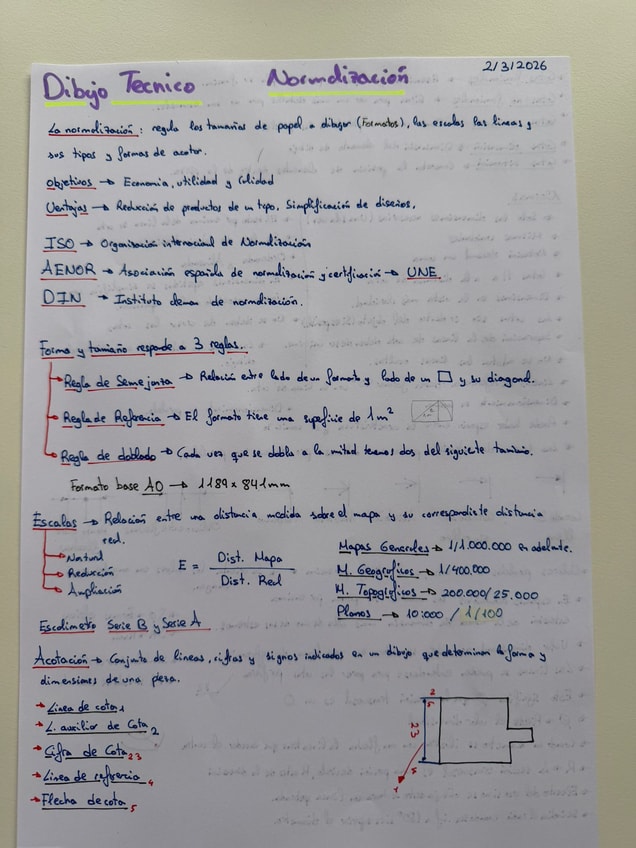 2/3/2026
Dibujo Tecnico Normalización
La normalización: regula los tamaños de papel a dibujar (Formatos), las escalas las lineas y
sus tipos y formas de acotar.
Objetivos → Economia, utilidad y calidad
Ventajas → Reducción de productos de un tipo. Simplificación de diseños.
ISO → Organización internacional de Normalización
AENOR → Asociación española de normalización y certificación → UNE
DIN → Instituto aleman de normalización.
Forma y tamaño responde a 3 reglas.
Regla de Semejanza → Relación entre lado de un formato y lado de un □ y su diagonal.
Regla de Referencia → El formato tiene una superficie de 1m²
Regla de doblado → Cada vez que se dobla a la mitad tenemos dos del siguiente tamaño.
Formato base A0 → 1189 x 841mm
Escalas → Relación entre una distancia medida sobre el mapa y su correspondiente distancia
real.
Natural
Reducción
Ampliación
E = Dist. Mapa / Dist. Real
Mapas Generales → 1/1.000.000 en adelante.
M. Geograficos → 1/400.000
M. Topograficos → 200.000/25.000
Planos → 10.000 / 1/100
Escalimetro Serie B y Serie A
Acotación → Conjunto de lineas, cifras y signos indicados en un dibujo que determinan la forma y
dimensiones de una pieza.
→ Linea de cota 1
→ L. auxiliar de Cota 2
→ Cifra de Cota 23
→ Linea de referencia 4
→ Flecha de cota 5
2
5
23
4
1